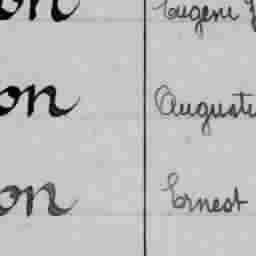 on Eugene
on August
on Ernest